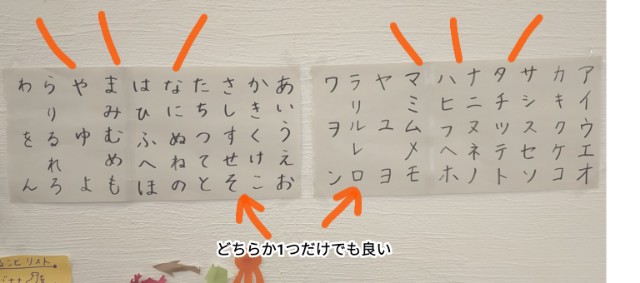 あいうえお
かきくけこ
さしすせそ
たちつてと
なにぬねの
はひふへほ
まみむめも
やゆよ
らりるれろ
わをん
アイウエオ
カキクケコ
サシスセソ
タチツテト
ナニヌネノ
ハヒフヘホ
マミムメモ
ヤユヨ
ラリルレロ
ワヲン
どちらか1つだけでも良い
ることリスト